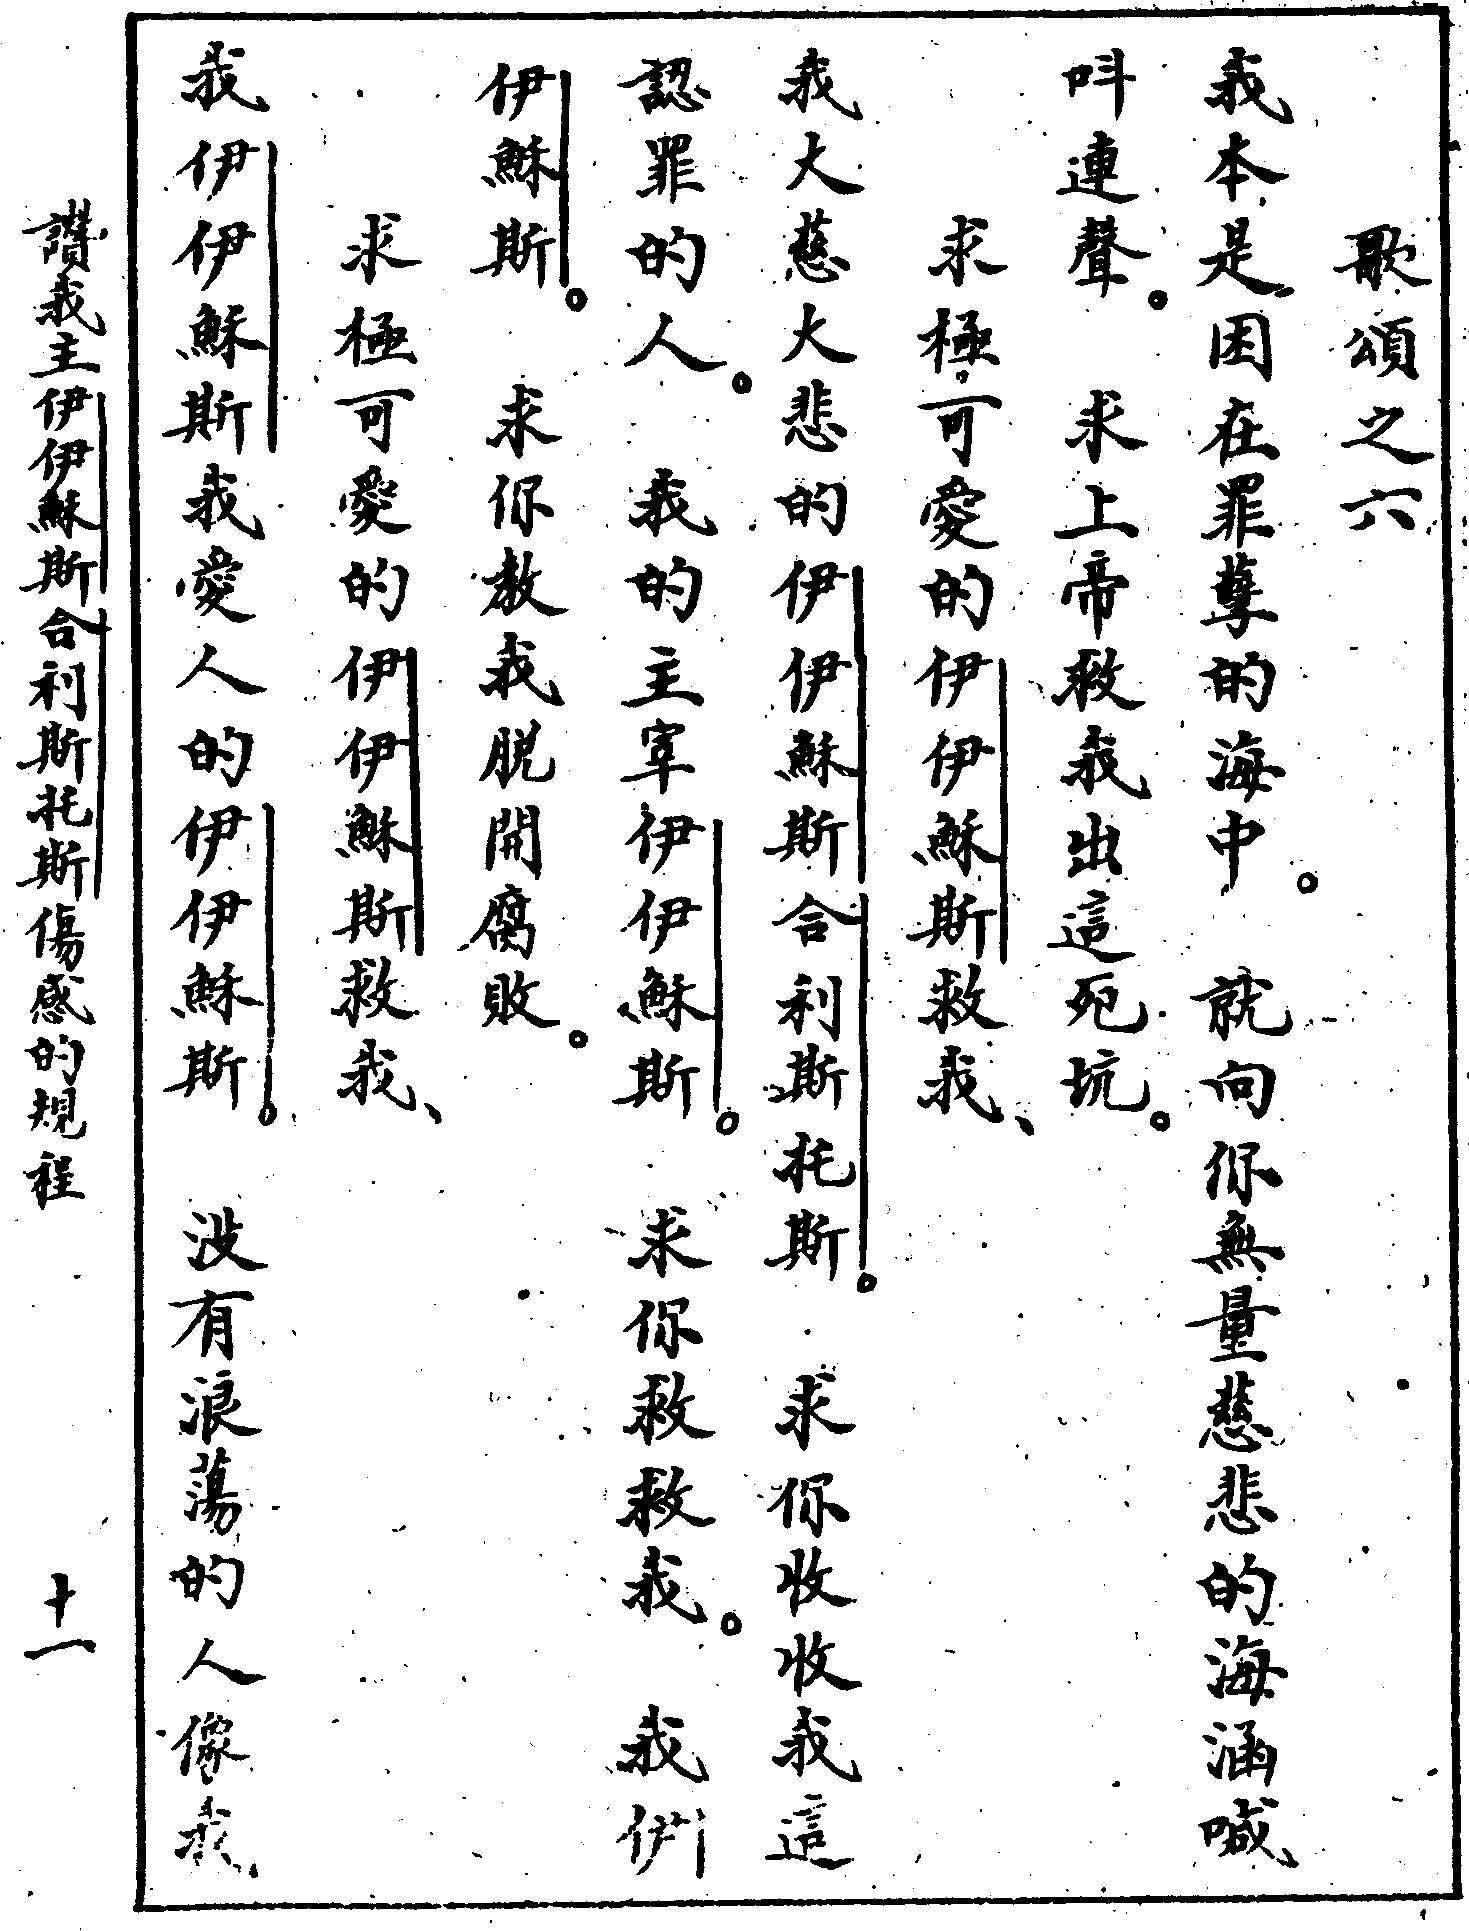 歌頌之六
我本是困在罪孽的海中。 就向你無量慈悲的海涵喊
呌連聲。 求上帝救我出這死坑。
求極可愛的伊伊穌斯救我、
我大慈大悲的伊伊穌斯合利斯托斯。 求你收收我這
認罪的人。 我的主宰伊伊穌斯。 求你救救我。 我伊
伊穌斯。 求你教我脱開腐敗。
求極可愛的伊伊穌斯救我、
我伊伊穌斯我愛人的伊伊穌斯。 没有浪蕩的人像我、
讚我主伊伊穌斯合利斯托斯傷感的規程
十一